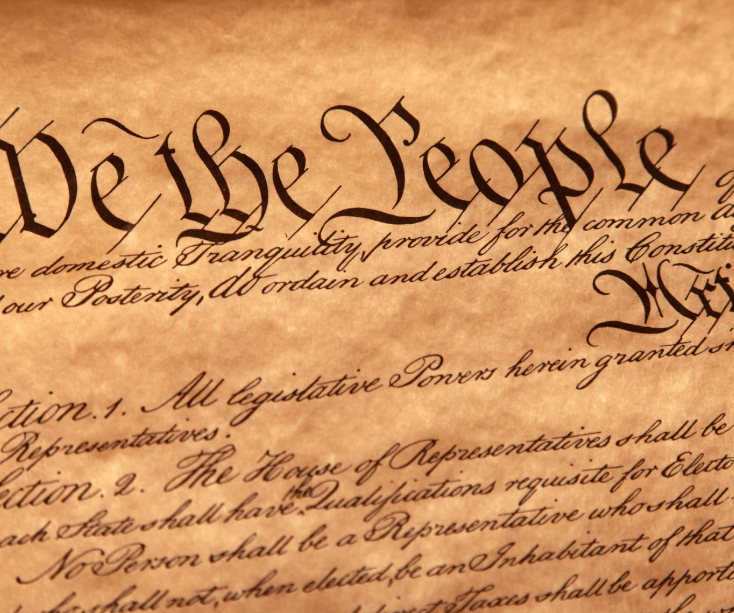 We the People of
re domestic Tranquility, provide for the common d
our Posterity, do ordain and establish this Constitu
Arti
ction. 1. All legislative Powers herein granted s
Representatives.
ection. 2. The House of Representatives shall be
ach State shall have the Qualifications requisite for Electo
No Person shall be a Representative who shall
shall not, when elected, be an Inhabitant of that
direct Taxes shall be apporti